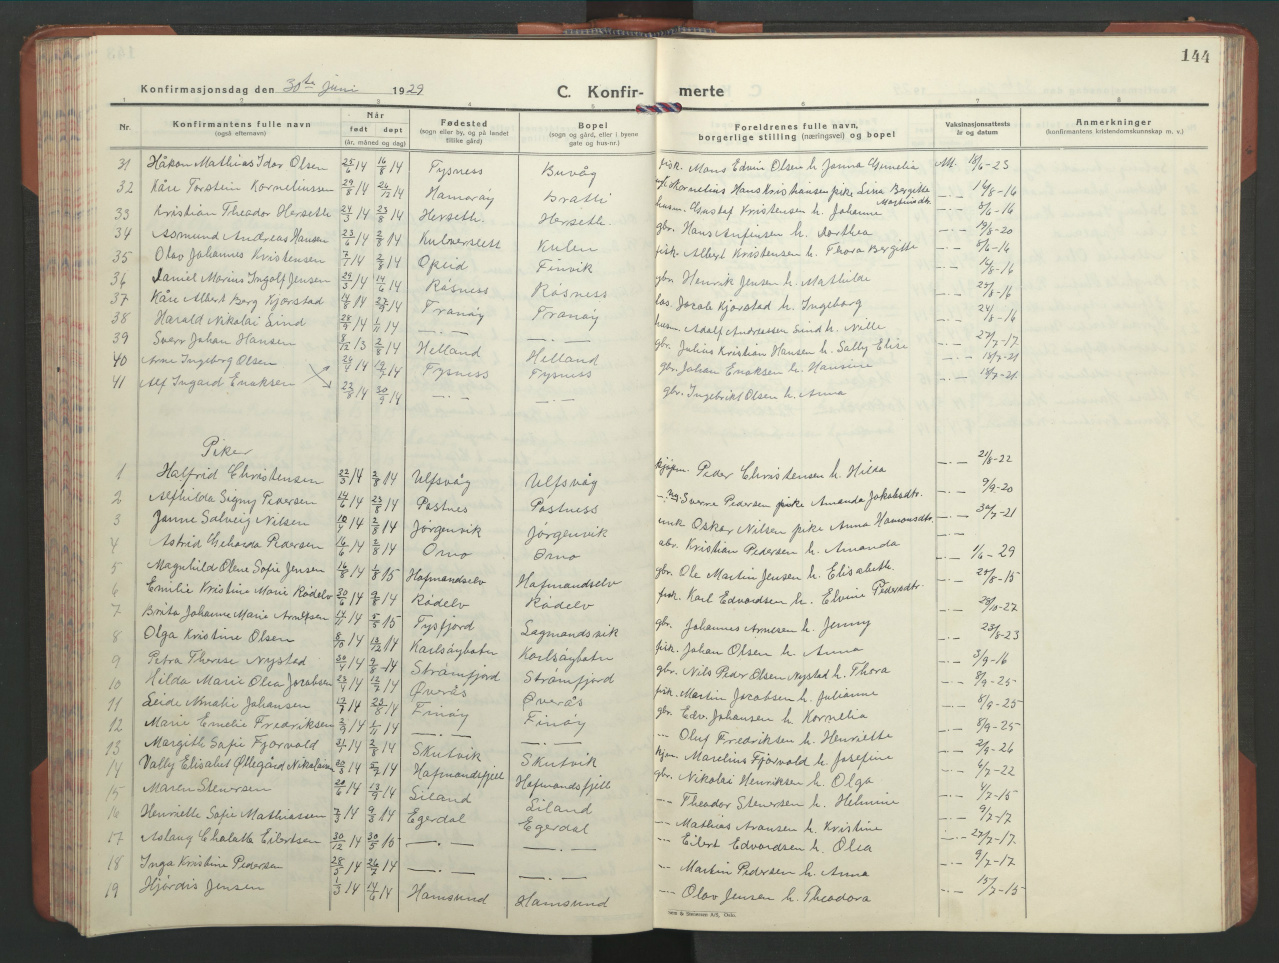 144
Konfirmasjonsdag den 30te juni 1929 C. Konfir- merte
1 2 3 4 5 6 7 8
Nr. Konfirmantens fulle navn (også efternavn) Når født døpt (år, måned og dag) Fødested (sogn eller by, og på landet tillike gård) Bopel (sogn og gård, eller i byene gate og hus-nr.) Foreldrenes fulle navn, borgerlige stilling (næringsvei) og bopel Vaksinasjonsattests år og datum Anmerkninger (konfirmantens kristendomskunnskap m. v.)
31 Håkon Mathias Idar Olsen 25/6 14 16/8 14 Tysness Buvåg fisk. Mons Edvin Olsen h. Janna Gunelia Att. 18/6-23
32 Kåre Torstein Korneliussen 29/8 14 26/12 14 Hamarøy Bratli Kornelius Hans Kristiansen pike Lina Bergitte Martinsdtr. 14/8-16
33 Kristian Theodor Herseth 24/3 14 23/8 14 Herseth. Herseth. husm. Gustaf Kristensen h. Johanne 8/6-16
34 Asmund Andreas Hansen 23/6 14 2/8 14 Kulverslett Kulen gbr. Hans Anfinsen h. Dorthea 19/8-20
35 Olav Johannes Kristensen 7/7 14 2/8 14 Opeid Finvik fisk. Albert Kristensen h. Thora Bergitte 8/6-16
36 Daniel Marius Ingolf Jensen 29/3 14 14/6 14 Røsness Røsness gbr. Henrik Jensen h. Mathilde 14/8-16
37 Kåre Albert Berg Kjørstad 14/8 14 27/9 14 Tranøy Tranøy los. Jacob Kjørstad h. Ingeborg 25/8-16
38 Harald Nikolai Lind 28/9 14 1/11 14 — . — — . — husm. Adolf Andreassen Lind h. Nille 24/8-16
39 Sverr Johan Hansen 8/12 13 2/8 14 Helland Helland gbr. Julius Kristian Hansen h. Salby Elise 27/7-17
40 Arne Ingeborg Olsen 24/4 14 19/7 14 Tysness Tysness gbr. Johan Enoksen h. Hansine 18/7-21
41 Alf Ingard Enoksen 23/8 14 30/9 14 — . — — . — gbr. Ingebrikt Olsen h. Anna 18/7-21
Piker
1 Halfrid Christensen 22/3 14 2/8 14 Ulfsvåg Ulfsvåg kjøpm. Peder Christensen h. Hilda — . — 21/8-22
2 Alfhilda Signy Pedersen 14/6 14 23/8 14 Postnes Postness Sverre Pedersen pike Amanda Jakobsdtr. — . — 9/9-20
3 Janne Solveig Nilsen 10/4 14 2/8 14 Jørgenvik Jørgenvik unk. Oskar Nilsen pike Anna Hansdtr. — . — 30/7-21
4 Astrid Geharda Pedersen 16/6 14 2/8 14 Ørno Ørno gbr. Kristian Pedersen h. Amanda — . —
5 Magnhild Olene Sofie Jensen 16/8 14 1/8 15 Hafmandselv Hafmandselv gbr. Ole Martin Jensen h. Elisabeth. — . — 1/6-29
6 Emilie Kristine Marie Rødelv 30/6 14 9/8 14 Rødelv Rødelv fisk. Karl Edvardsen h. Elvine Pedersdtr. — . — 20/8-15
7 Brita Johanne Marie Arntsen 14/11 14 5/5 15 Tysfjord Lagmandsvik gbr. Johannes Arnesen h. Jenny — . — 28/10-27
8 Olga Kristine Olsen 8/10 14 13/12 14 Karlsøybotn Karlsøybotn fisk. Johan Olsen h. Anna — . — 23/8-23
9 Petra Therese Nystad 30/4 14 9/8 14 Strømfjord Strømfjord gbr. Nils Peder Olsen Nystad h. Thora — . — 3/9-16
10 Hilda Marie Olea Jacobsen 23/4 14 12/7 14 Øverås Øverås fisk. Martin Jacobsen h. Julianne — . — 8/9-25
11 Leide Amalie Johansen 17/7 14 23/8 14 Finøy Finøy gbr. Edv. Johansen h. Kornelia — . — 8/9-25
12 Marie Emelie Fredriksen 2/9 14 1/11 14 — . — — . — — Oluf Fredriksen h. Henriette — . — 8/9-25
13 Margith Sofie Fjørvold 31/1 14 2/8 14 Skutvik Skutvik Marelius Fjørvold h. Josefine — . — 2/8-26
14 Vally Elisabet Øllegård Nikolaisen 20/3 14 5/7 14 Hafmandsfjell Hafmandsfjell gbr. Nikolai Henriksen h. Olga — . — 6/7-22
15 Maren Stenersen 20/6 14 13/9 14 Siland Siland — Theodor Stenersen h. Helmine — . — 4/7-15
16 Henriette Sofie Mathiassen 7/3 14 9/8 14 Egerdal Egerdal — Mathias Aronsen h. Kristine — . — 9/7-17
17 Aslaug Chalotte Eilertsen 30/12 14 30/5 15 — . — — . — — Eilert Edvardsen h. Olea — . — 27/7-17
18 Inga Kristine Pedersen 28/5 14 26/7 14 — . — — . — — Martin Pedersen h. Anna — . — 9/7-17
19 Hjørdis Jensen 1/3 14 14/6 14 Hamsund Hamsund — Olav Jensen h. Theodora — . — 15/7-15